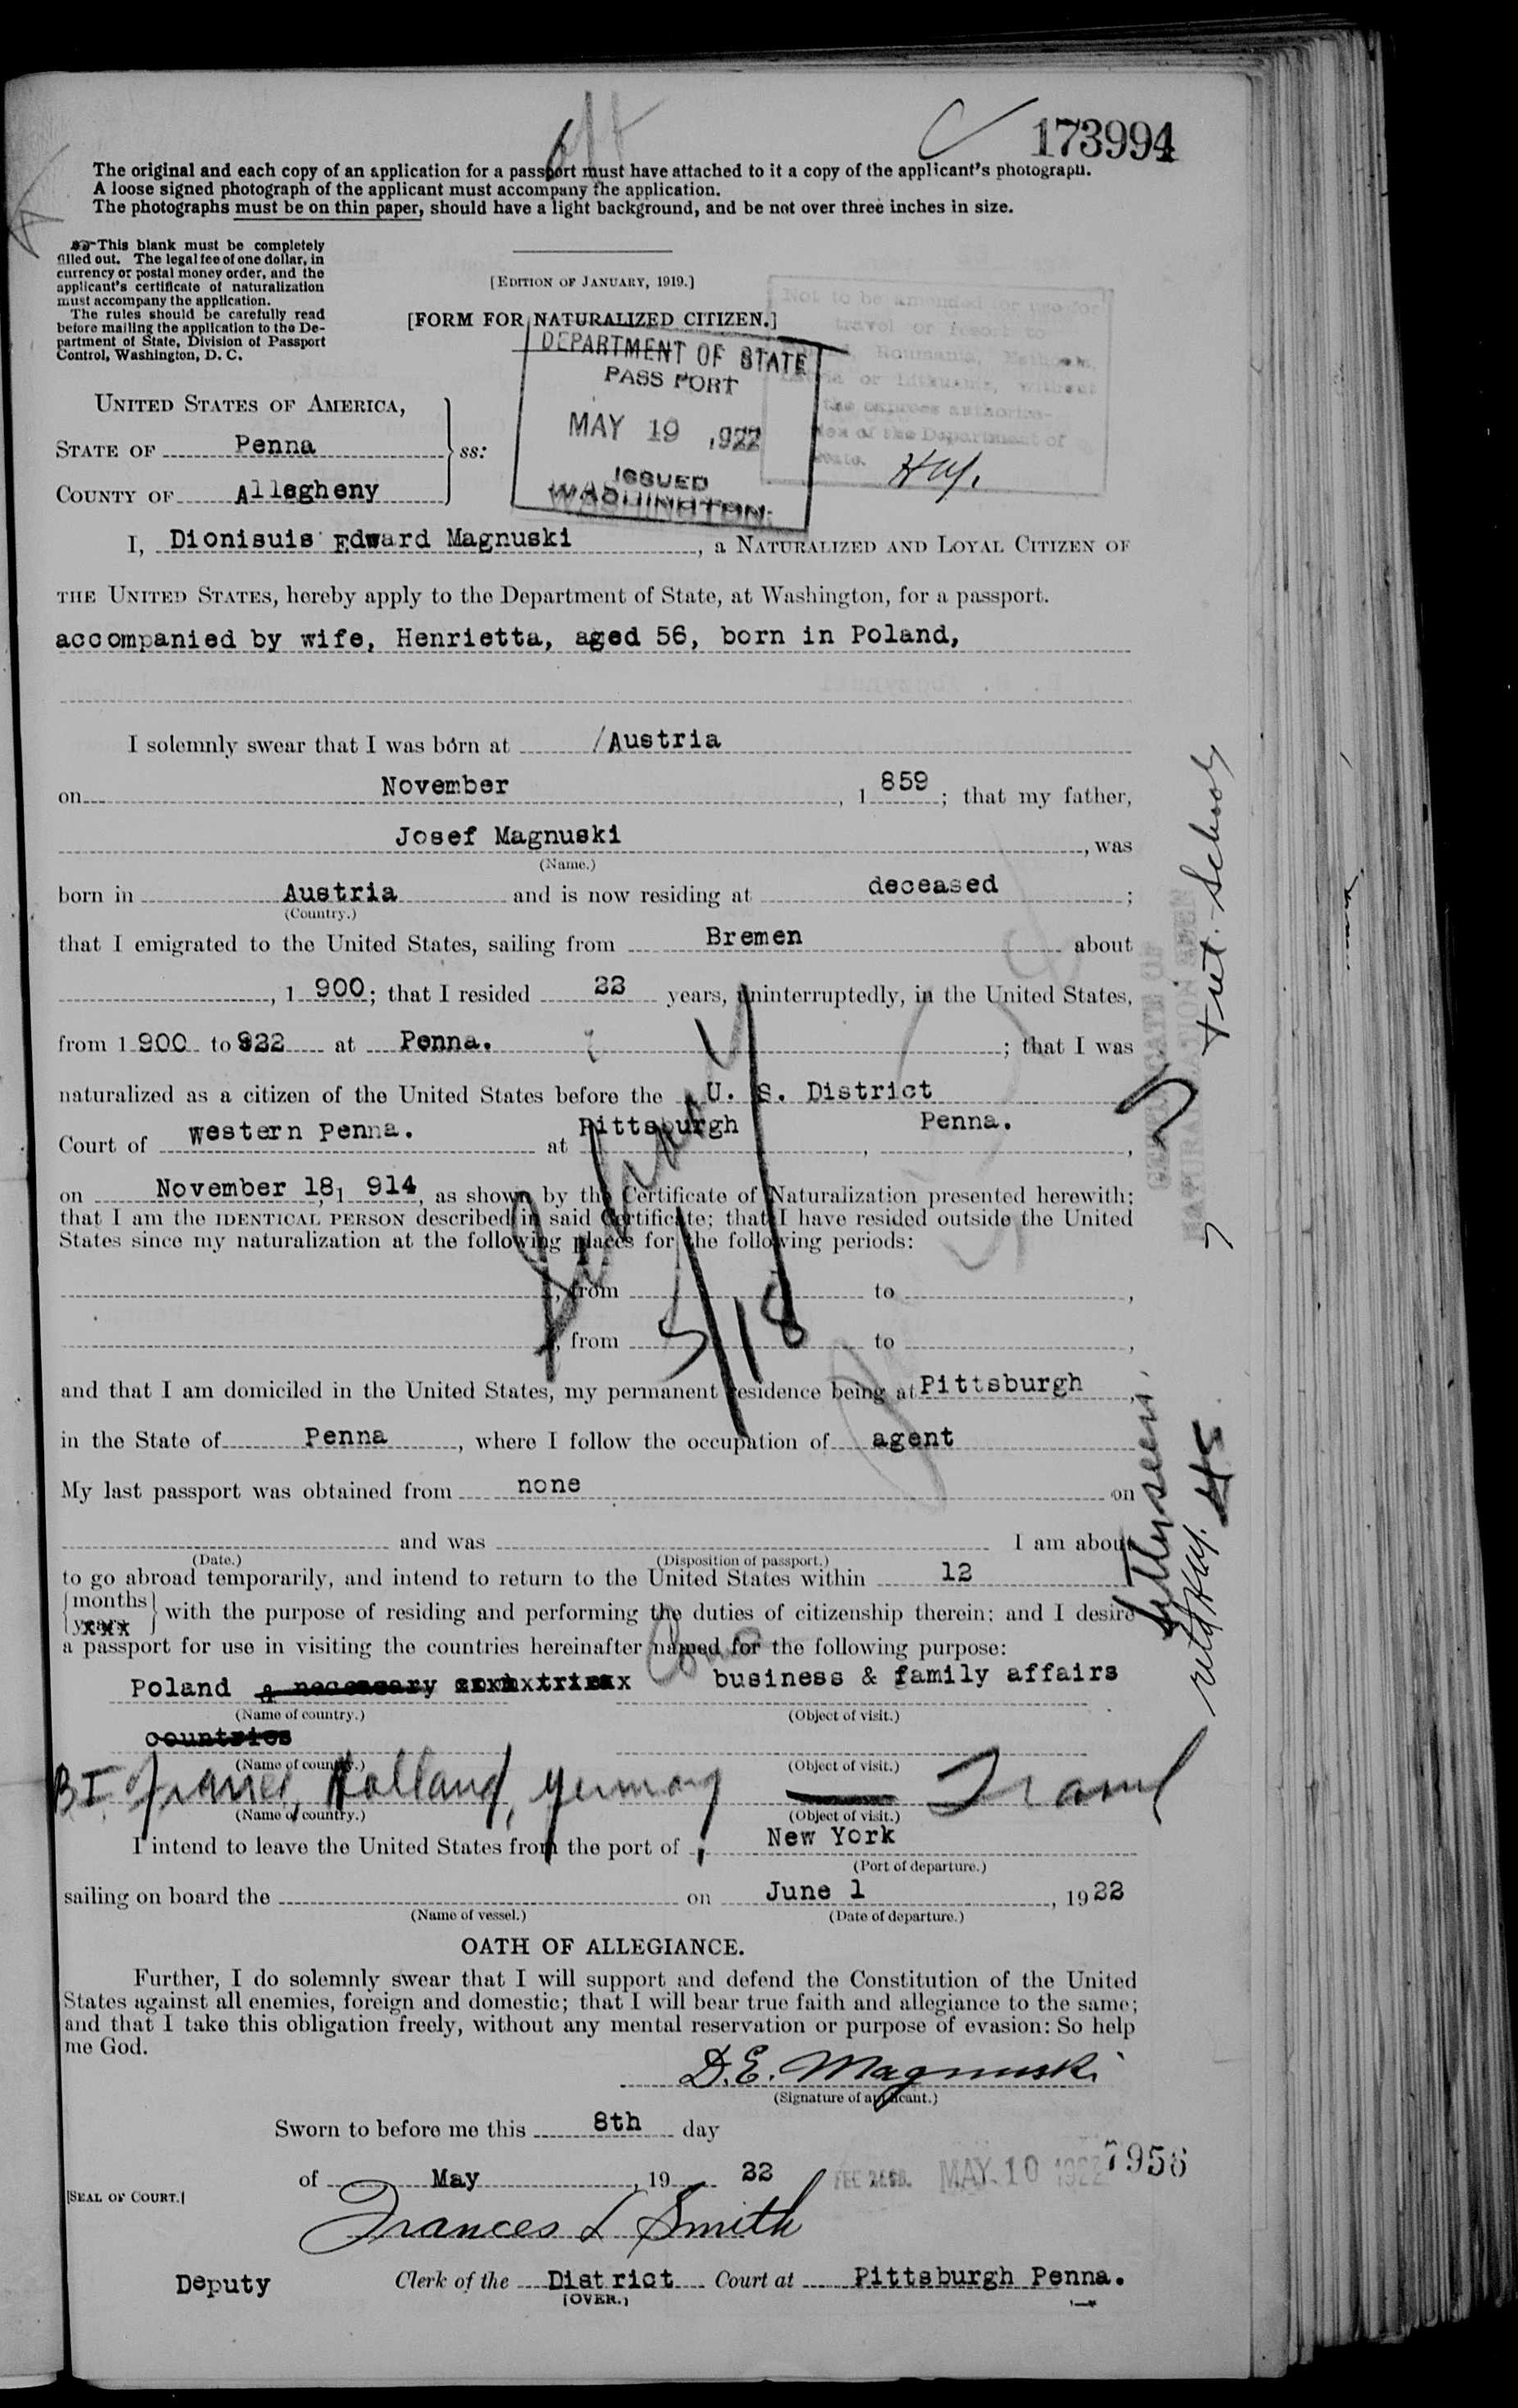 173994
The original and each copy of an application for a passport must have attached to it a copy of the applicant's photograph.
A loose signed photograph of the applicant must accompany the application.
The photographs must be on thin paper, should have a light background, and be not over three inches in size.
This blank must be completely
filled out. The legal fee of one dollar, in
currency or postal money order, and the
applicant's certificate of naturalization
must accompany the application.
The rules should be carefully read
before mailing the application to the De-
partment of State, Division of Passport
Control, Washington, D. C.
[EDITION OF JANUARY, 1919.]
[FORM FOR NATURALIZED CITIZEN.]
Not to be amended for use for
travel or resort to
Roumania, Esthonia,
or Lithuania, without
the express authoriza-
tion of the Department of
State.
DEPARTMENT OF STATE
PASSPORT
MAY 19 1922
ISSUED
WASHINGTON.
UNITED STATES OF AMERICA,
STATE OF Penna
ss:
COUNTY OF Allegheny
I, Dionisuis Edward Magnuski, a NATURALIZED AND LOYAL CITIZEN OF
THE UNITED STATES, hereby apply to the Department of State, at Washington, for a passport.
accompanied by wife, Henrietta, aged 56, born in Poland,
I solemnly swear that I was born at Austria
on November, 1859; that my father,
Josef Magnuski, was
(Name.)
born in Austria and is now residing at deceased;
(Country.)
that I emigrated to the United States, sailing from Bremen about
, 1900; that I resided 22 years, uninterruptedly, in the United States,
from 1900 to 922 at Penna. ; that I was
naturalized as a citizen of the United States before the U. S. District
Court of Western Penna. at Pittsburgh, Penna.,
on November 18, 1914, as shown by the Certificate of Naturalization presented herewith;
that I am the IDENTICAL PERSON described in said Certificate; that I have resided outside the United
States since my naturalization at the following places for the following periods:
, from to ,
, from to ,
5/18
and that I am domiciled in the United States, my permanent residence being at Pittsburgh,
in the State of Penna, where I follow the occupation of agent
My last passport was obtained from none on
and was I am about
(Date.) (Disposition of passport.)
to go abroad temporarily, and intend to return to the United States within 12
months
years with the purpose of residing and performing the duties of citizenship therein; and I desire
a passport for use in visiting the countries hereinafter named for the following purpose:
Poland & necessary business & family affairs
(Name of country.) (Object of visit.)
countries
(Name of country.) (Object of visit.)
BI. France, Holland, Germany Travel
(Name of country.) (Object of visit.)
I intend to leave the United States from the port of New York
(Port of departure.)
sailing on board the on June 1, 1922
(Name of vessel.) (Date of departure.)
OATH OF ALLEGIANCE.
Further, I do solemnly swear that I will support and defend the Constitution of the United
States against all enemies, foreign and domestic; that I will bear true faith and allegiance to the same;
and that I take this obligation freely, without any mental reservation or purpose of evasion: So help
me God.
D. E. Magnuski
(Signature of applicant.)
Sworn to before me this 8th day
of May, 1922
FEE RECD. MAY 10 1922 7956
[SEAL OF COURT.]
Frances L Smith
Deputy Clerk of the District Court at Pittsburgh Penna.
(OVER.)